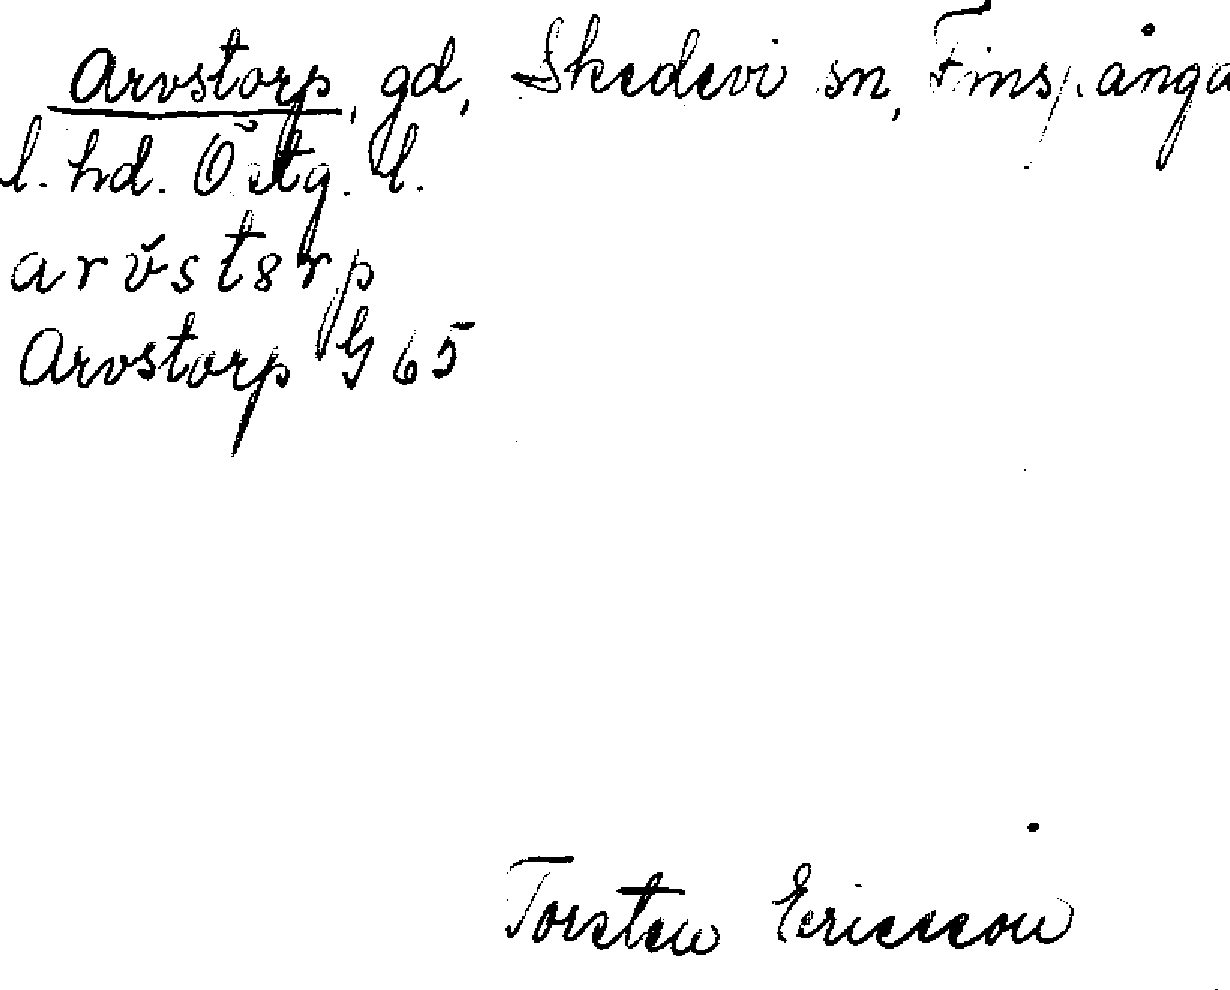 Arvstorp, gd, Skedevi sn, Finspånga
l. hd. Östg. l.
arv̆stsrp
Arvstorp G 65
Torsten Ericsson